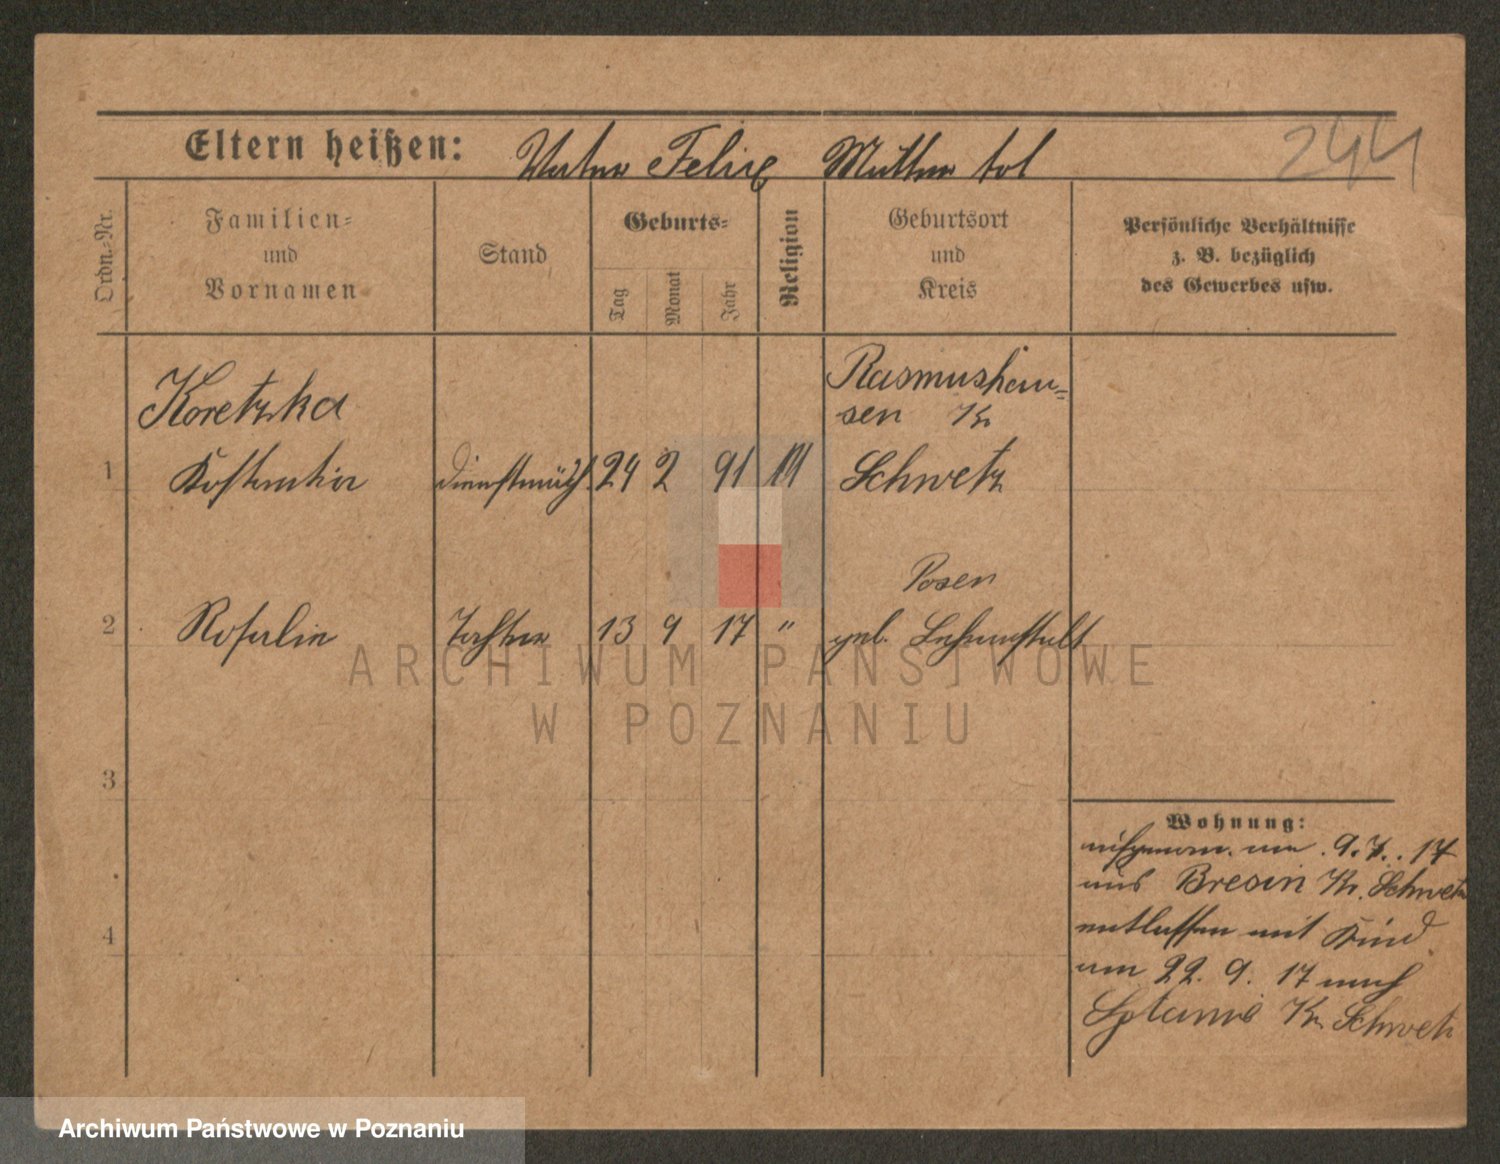 244
Eltern heißen: Vater Felix Mutter tot
Ordn.-Nr.
Familien-
und
Vornamen
Stand
Geburts-
Tag
Monat
Jahr
Religion
Geburtsort
und
Kreis
Persönliche Verhältnisse
z. B. bezüglich
des Gewerbes usw.
Koretzka
Rasmushau-
sen Kr
1 Kostantia Dienstmäd. 24 2 91 Schwetz
Posen
2 Rosalie Tochter 13 9 17 " geb.
3
4
Wohnung:
aufgenom. am 9.7.17
aus Bresin Kr. Schwetz
entlassen mit Kind
am 22. 9. 17 nach
Kr. Schwetz
ARCHIWUM PAŃSTWOWE
W POZNANIU
Archiwum Państwowe w Poznaniu